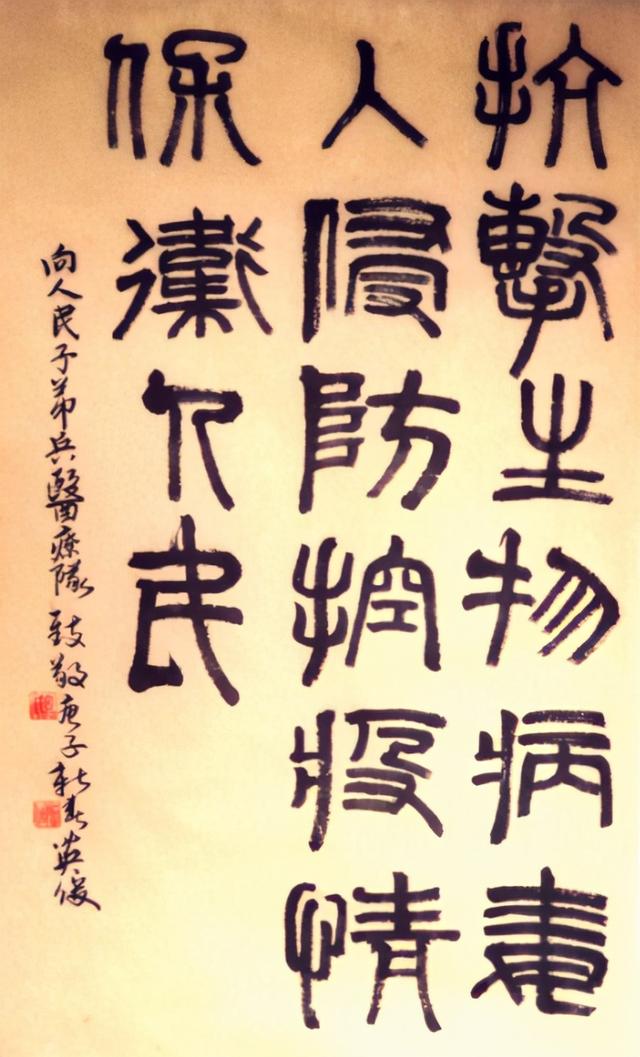 抗擊生物病毒
入侵防控疫情
保衛人民
向人民子弟兵醫療隊致敬庚子新春英俊